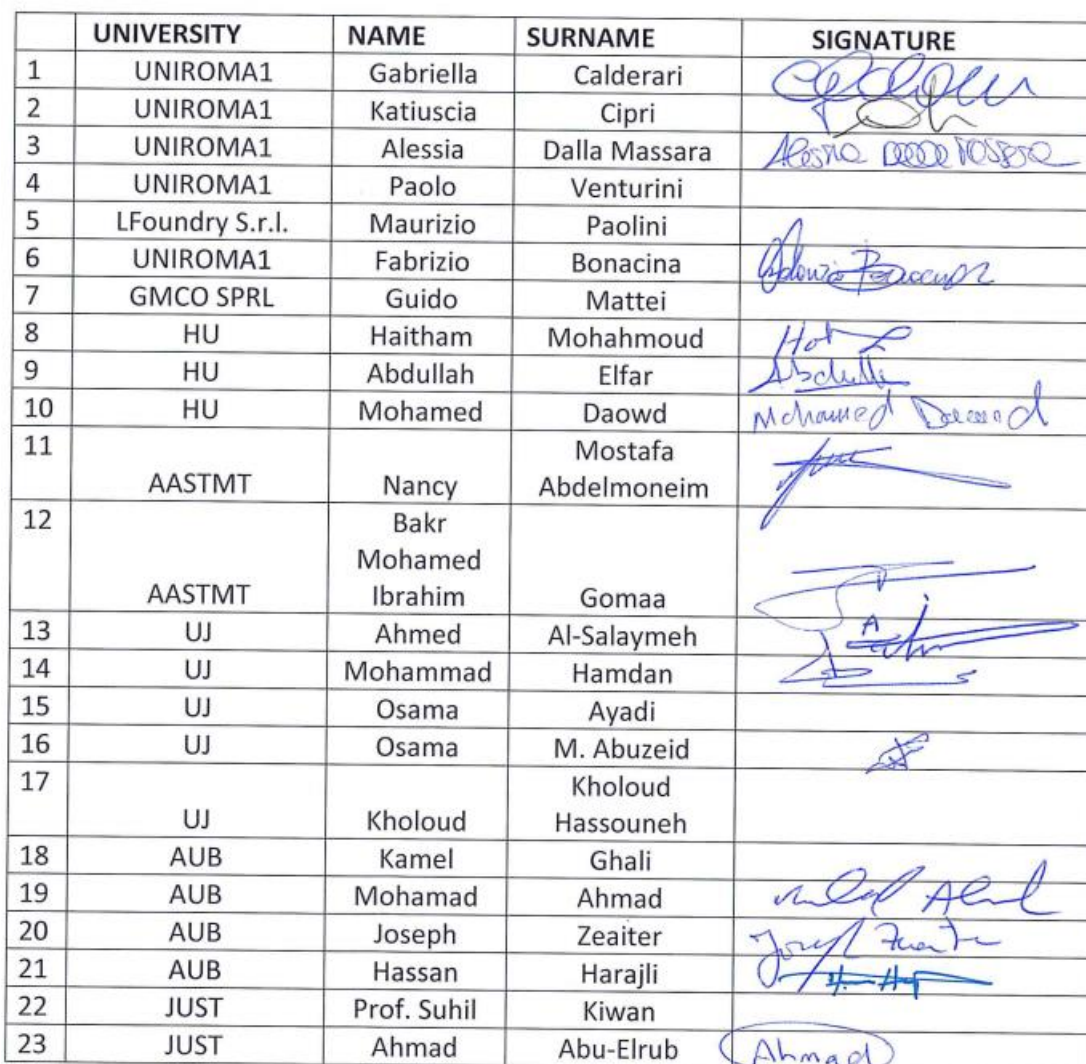 UNIVERSITY NAME SURNAME SIGNATURE
1 UNIROMA1 Gabriella Calderari
2 UNIROMA1 Katiuscia Cipri
3 UNIROMA1 Alessia Dalla Massara
4 UNIROMA1 Paolo Venturini
5 LFoundry S.r.l. Maurizio Paolini
6 UNIROMA1 Fabrizio Bonacina
7 GMCO SPRL Guido Mattei
8 HU Haitham Mohahmoud
9 HU Abdullah Elfar Abdullah
10 HU Mohamed Daowd Mohamed Daowd
11 Mostafa
AASTMT Nancy Abdelmoneim
12 Bakr
Mohamed
AASTMT Ibrahim Gomaa
13 UJ Ahmed Al-Salaymeh
14 UJ Mohammad Hamdan
15 UJ Osama Ayadi
16 UJ Osama M. Abuzeid
17 Kholoud
UJ Kholoud Hassouneh
18 AUB Kamel Ghali
19 AUB Mohamad Ahmad
20 AUB Joseph Zeaiter Joseph
21 AUB Hassan Harajli
22 JUST Prof. Suhil Kiwan
23 JUST Ahmad Abu-Elrub Ahmad